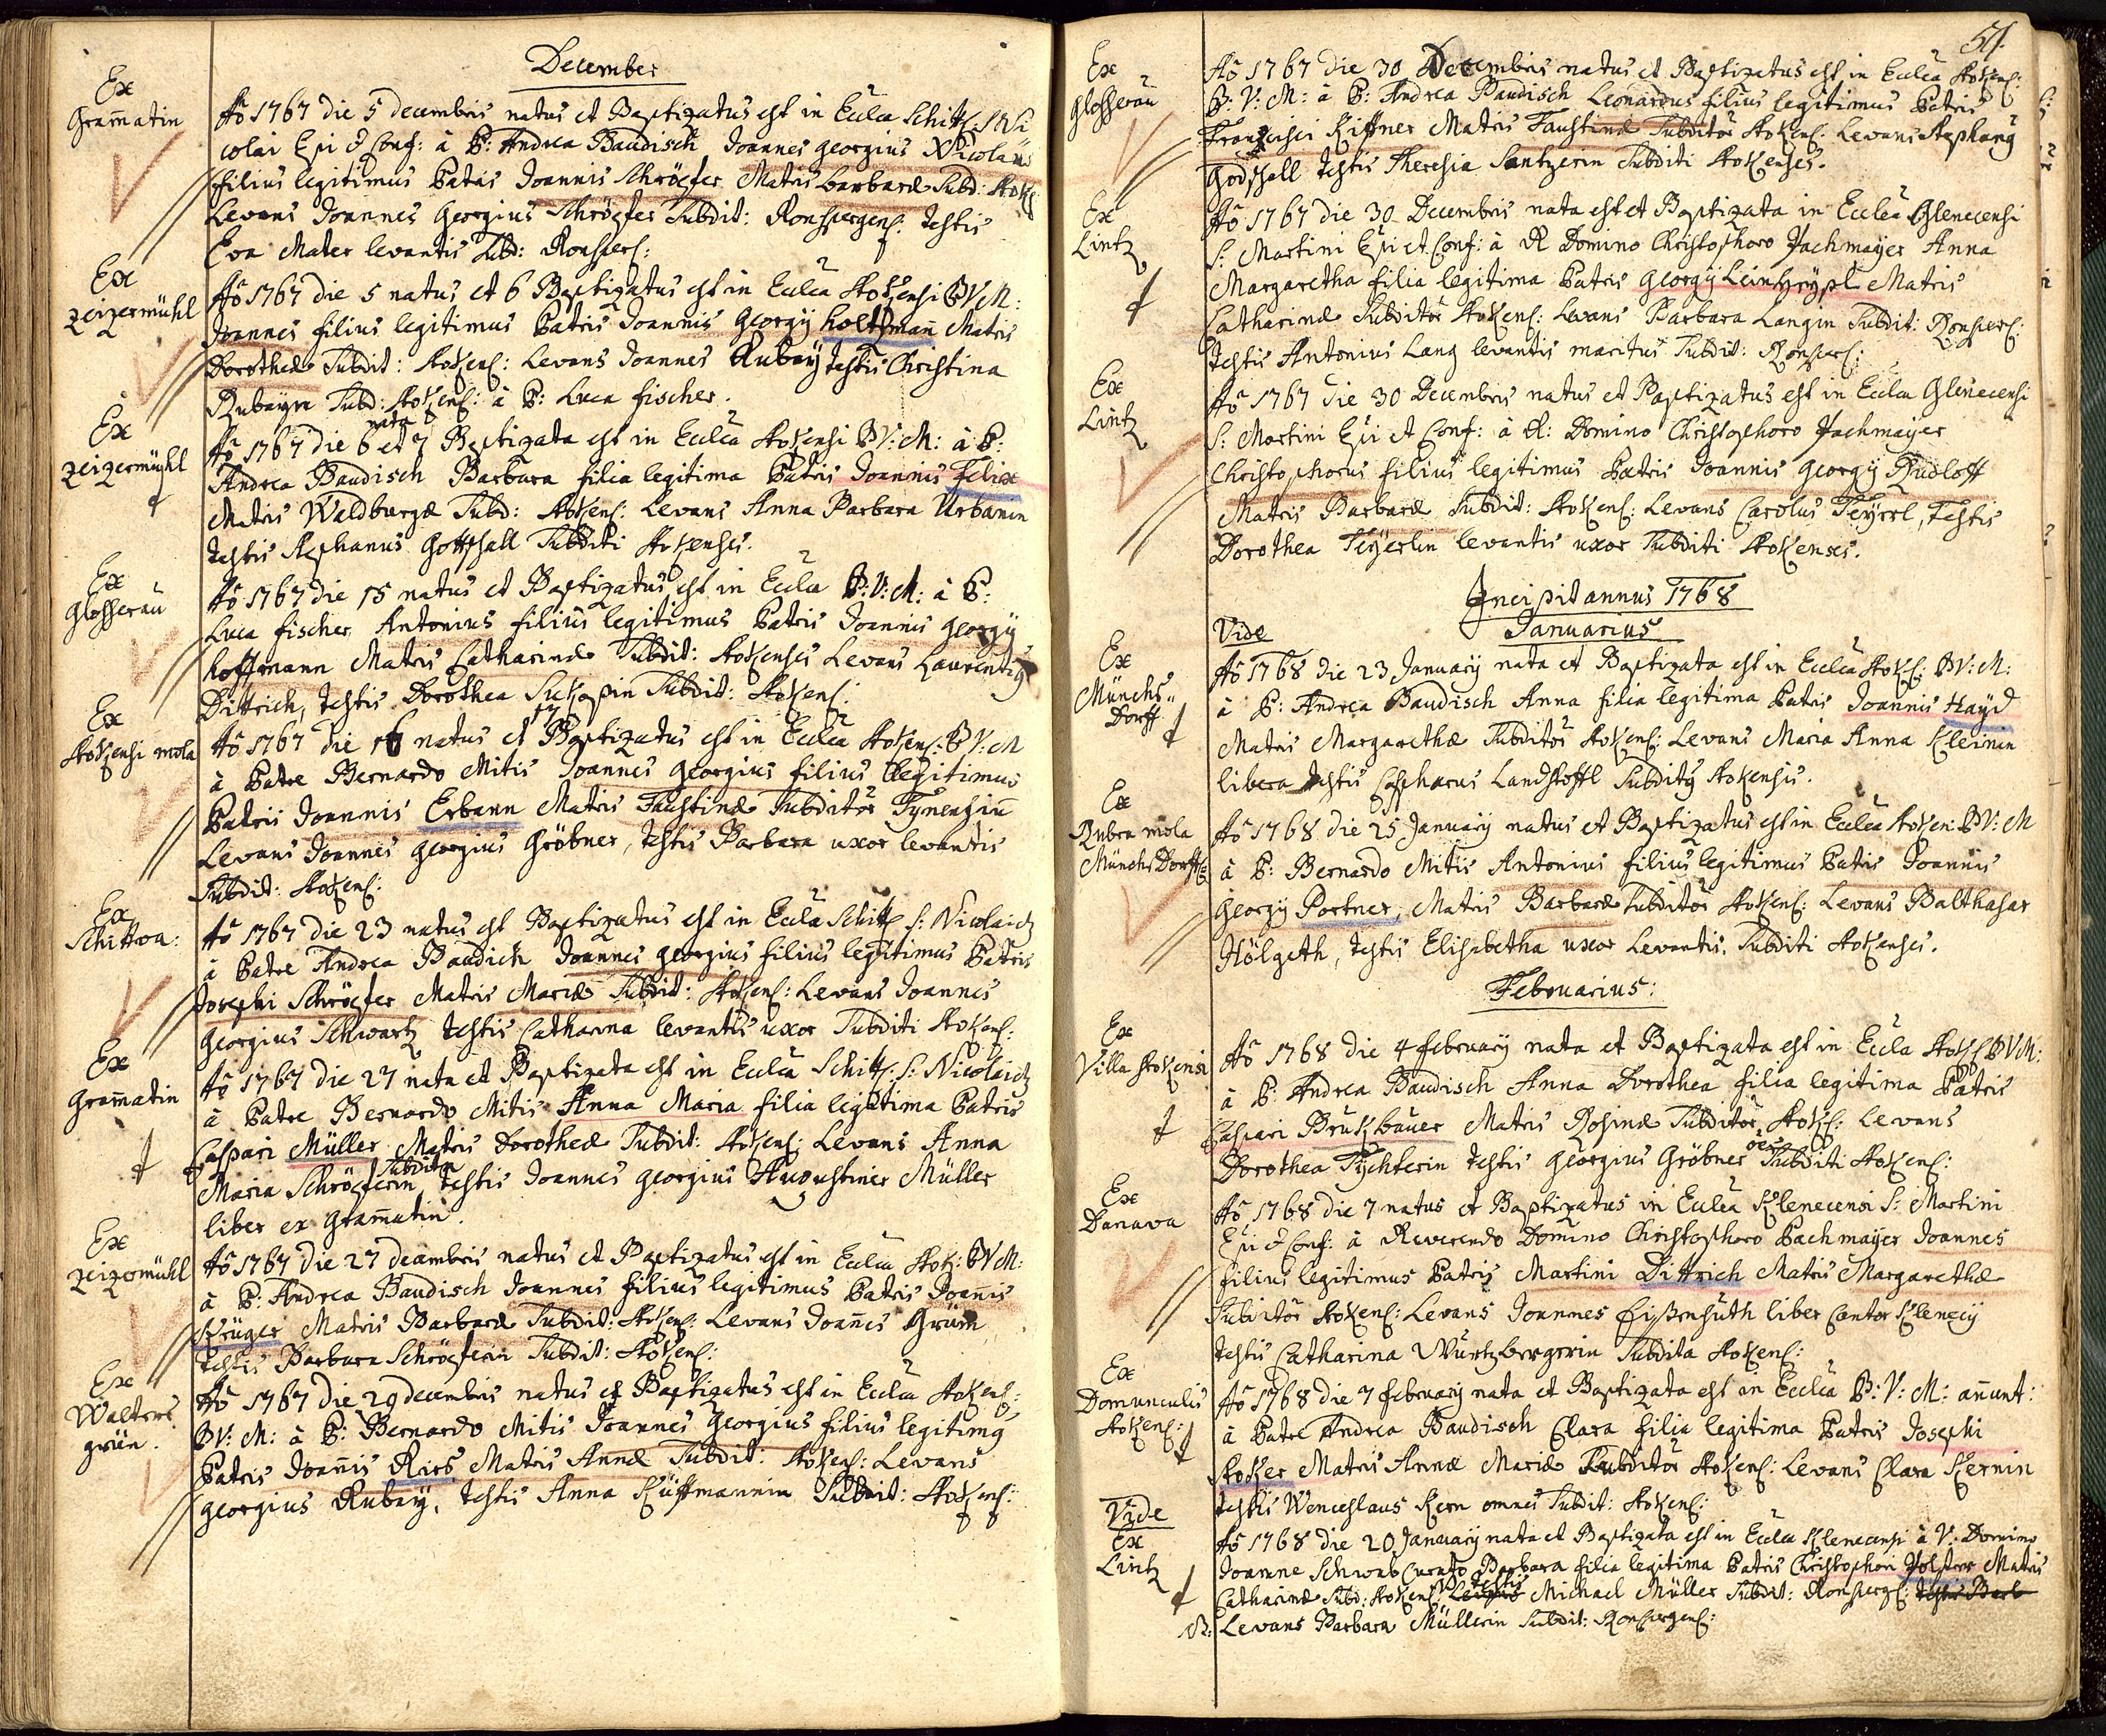 December
Ex
Gramatin
Ao 1767 die 5 decembris natus et Baptizatus est in Eccla Schitt: S: Ni
colai Epi & Conf: à P: Andrea Baudisch Joannes georgius Nicolaus
filius legitimus Patris Joannis Schröpfer Matris barbaræ Subd: Stokens:
Levans Joannes Georgius Schröpfer Subdit: Ronspergens: testis
Eva Mater levantis Subd: Ronspers:
Ex
Zeizermühl
Ao 1767 die 5 natus et 6 Baptizatus est in Eccla Stokensi B V M:
Joannes filius legitimus Patris Joannis Georgij holtzmañ Matris
Dorotheæ Subdit: Stokens: Levans Joannes Rubey testis Christina
Rubeyin Subd: Stokens: à P: Luca fischer.
Ex
Zeizermühl
nata
Ao 1767 die 6 et 7 Baptizata est in Eccla Stokensi B V: M: à P:
Andrea Baudisch Barbara filia legitima Patris Joannis Felix
Matris Waldburgæ Subd: Stokens: Levans Anna Barbara Urbanin
testis Stephanus Gottschall Subditi Stokenses.
Ex
Glosserau
Ao 1767 die 15 natus et Baptizatus est in Eccla B: V: M: à P:
Luca fischer Antonius filius legitimus Patris Joannis georgij
hoffmann Matris Catharinæ Subdit: Stokenses Levans Laurentig
Dittrich, testis Dorothea Sukopin Subdit: Stokens:
Ex
Stokensi mola
17
Ao 1767 die 16 natus et Baptizatus est in Eccla Stokens: B V: M
à Patre Bernardo Mitis Joannes georgius filius legitimus
Patris Joannis Erbann Matris Faustinæ Subditor Tynensium
Levans Joannes georgius Gröbner, testis Barbara uxor levantis
Subdit: Stokens:
Ex
Schittwa:
Ao 1767 die 23 natus est Baptizatus est in Eccla Schitt S: Nicolai &
à Patre Andrea Baudisch Joannes georgius filius legitimus Patris
Josephi Schröpfer Matris Mariæ Subdit: Stokens: Levans Joannes
Georgius Schwartz testis Catharina levantis uxor Subditi Stokens:
Ex
Gramatin
Ao 1767 die 27 nata et Baptizata est in Eccla Schitt: S: Nicolai &
à Patre Bernardo Mitis Anna Maria filia legitima Patris
Caspari Müller Matris Dorotheæ Subdit: Stokens: Levans Anna
Subdita
Maria Schröpferin testis Joannes georgius Augustiner Müller
liber ex Gramatin.
Ex
Zeizermühl
Ao 1767 die 27 decembris natus et Baptizatus est in Eccla Stok: B V M:
à P: Andrea Baudisch Joannes filius legitimus Patris Joañis
Krüger Matris Barbaræ Subdit: Stokens: Levans Joañes Grüm
testis Barbara Schröpferin Subdit: Stokens:
Ex
Walters
grün.
Ao 1767 die 29 decembris natus et Baptizatus est in Eccla Stokens:
B V: M: à P: Bernardo Mitis Joannes Georgius filius legitimg
Patris Joañis Ries Matris Annæ Subdit: Stokens: Levans
georgius Rubey, testis Anna Küffmannin Subdit: Stokens:
51.
Ex
Glosserau
Ao 1767 die 30 Decembris natus et Baptizatus est in Eccla Stokens:
B: V: M: à P: Andrea Baudisch Leonardus filius legitimus Patris
Francisci Kiffner Matris Faustinæ Subditor Stokens: Levans Stephang
Godschall testis Theresia Santzerin Subditi Stokenses.
Ex
Lintz
Ao 1767 die 30 Decembris nata est et Baptizata in Eccla Glenecensi
S: Martini Epi et Conf: à R Domino Christophoro Pachmayer Anna
Margaretha filia legitima Patris georgij Leinhrÿpl Matris
Catharinæ Subditor Stokens: Levans Barbara Langin Subdit: Ronspers:
testis Antonius Lang levantis maritus Subdit: Ronspers:
Ex
Lintz
Ao 1767 die 30 Decembris natus et Baptizatus est in Eccla Glenecensi
S: Martini Epi et Conf: à R: Domino Christophoro Pachmayer
Christophorus filius legitimus Patris Joannis georgij Rudloff
Matris Barbaræ Subdit: Stokens: Levans Carolus Teyerl, testis
Dorothea Teyerlin levantis uxor Subditi Stokenses.
Incipit annus 1768
Vide
Januarius
Ex
Münchs"
Dorff
Ao 1768 die 23 Januarij nata et Baptizata est in Eccla Stoks: B V: M:
à P: Andrea Baudisch Anna filia legitima Patris Joannis Hayd
Matris Margarethæ Subditor Stokens: Levans Maria Anna Kleinin
libera testis Casparus Landstoffl Subditg Stokensis.
Ex
Rubra mola
MünchsDorff
Ao 1768 die 25 Januarij natus et Baptizatus est in Eccla Stoken: B V: M
à P: Bernardo Mitis Antonius filius legitimus Patris Joannis
Georgij Portner, Matris Barbaræ Subditor Stokens: Levans Balthasar
Hölgeth, testis Elisabetha uxor Levantis. Subditi Stokenses.
Februarius:
Ex
Villa Stokensi
Ao 1768 die 4 februarij nata et Baptizata est in Eccla Stoks B V M:
à P: Andrea Baudisch Anna Dorothea filia legitima Patris
Caspari Brukbauer Matris Rosinæ Subditor Stoks: Levans
Dorothea Tychterin testis Georgius Gröbner oes Subditi Stokens:
Ex
Danava
Ao 1768 die 7 natus et Baptizatus in Eccla Klenecensi S: Martini
Epi & Conf: à Reverendo Domino Christophoro Pachmayer Joannes
filius legitimus Patris Martini Dittrich Matris Margarethæ
Subditor Stokens: Levans Joannes Eißenhuth liber Cantor Klenecij
testis Catharina Würtzbergerin Subdita Stokens:
Ex
Domunculis
Stokens:
Ao 1768 die 7 februarij nata et Baptizata est in Eccla B: V: M: anunt:
à Patre Andrea Baudisch Clara filia legitima Patris Josephi
Stoker Matris Annæ Mariæ Subditor Stokens: Levans Clara Kernin
testis Wenceslaus Kern omnes Subdit: Stokens:
Vide
Ex
Lintz
Ao 1768 die 20 Januarij nata et Baptizata est in Eccla Klenecensi à V: Domino
Joanne Schwab Curato Barbara filia legitima Patris Christophori Polster Matris
testis
Catharinæ Subd: Stokens: Levans Michael Müller Subdit: Ronsperg: testis Barb
N: Levans Barbara Müllerin Subdit: Ronspergens: